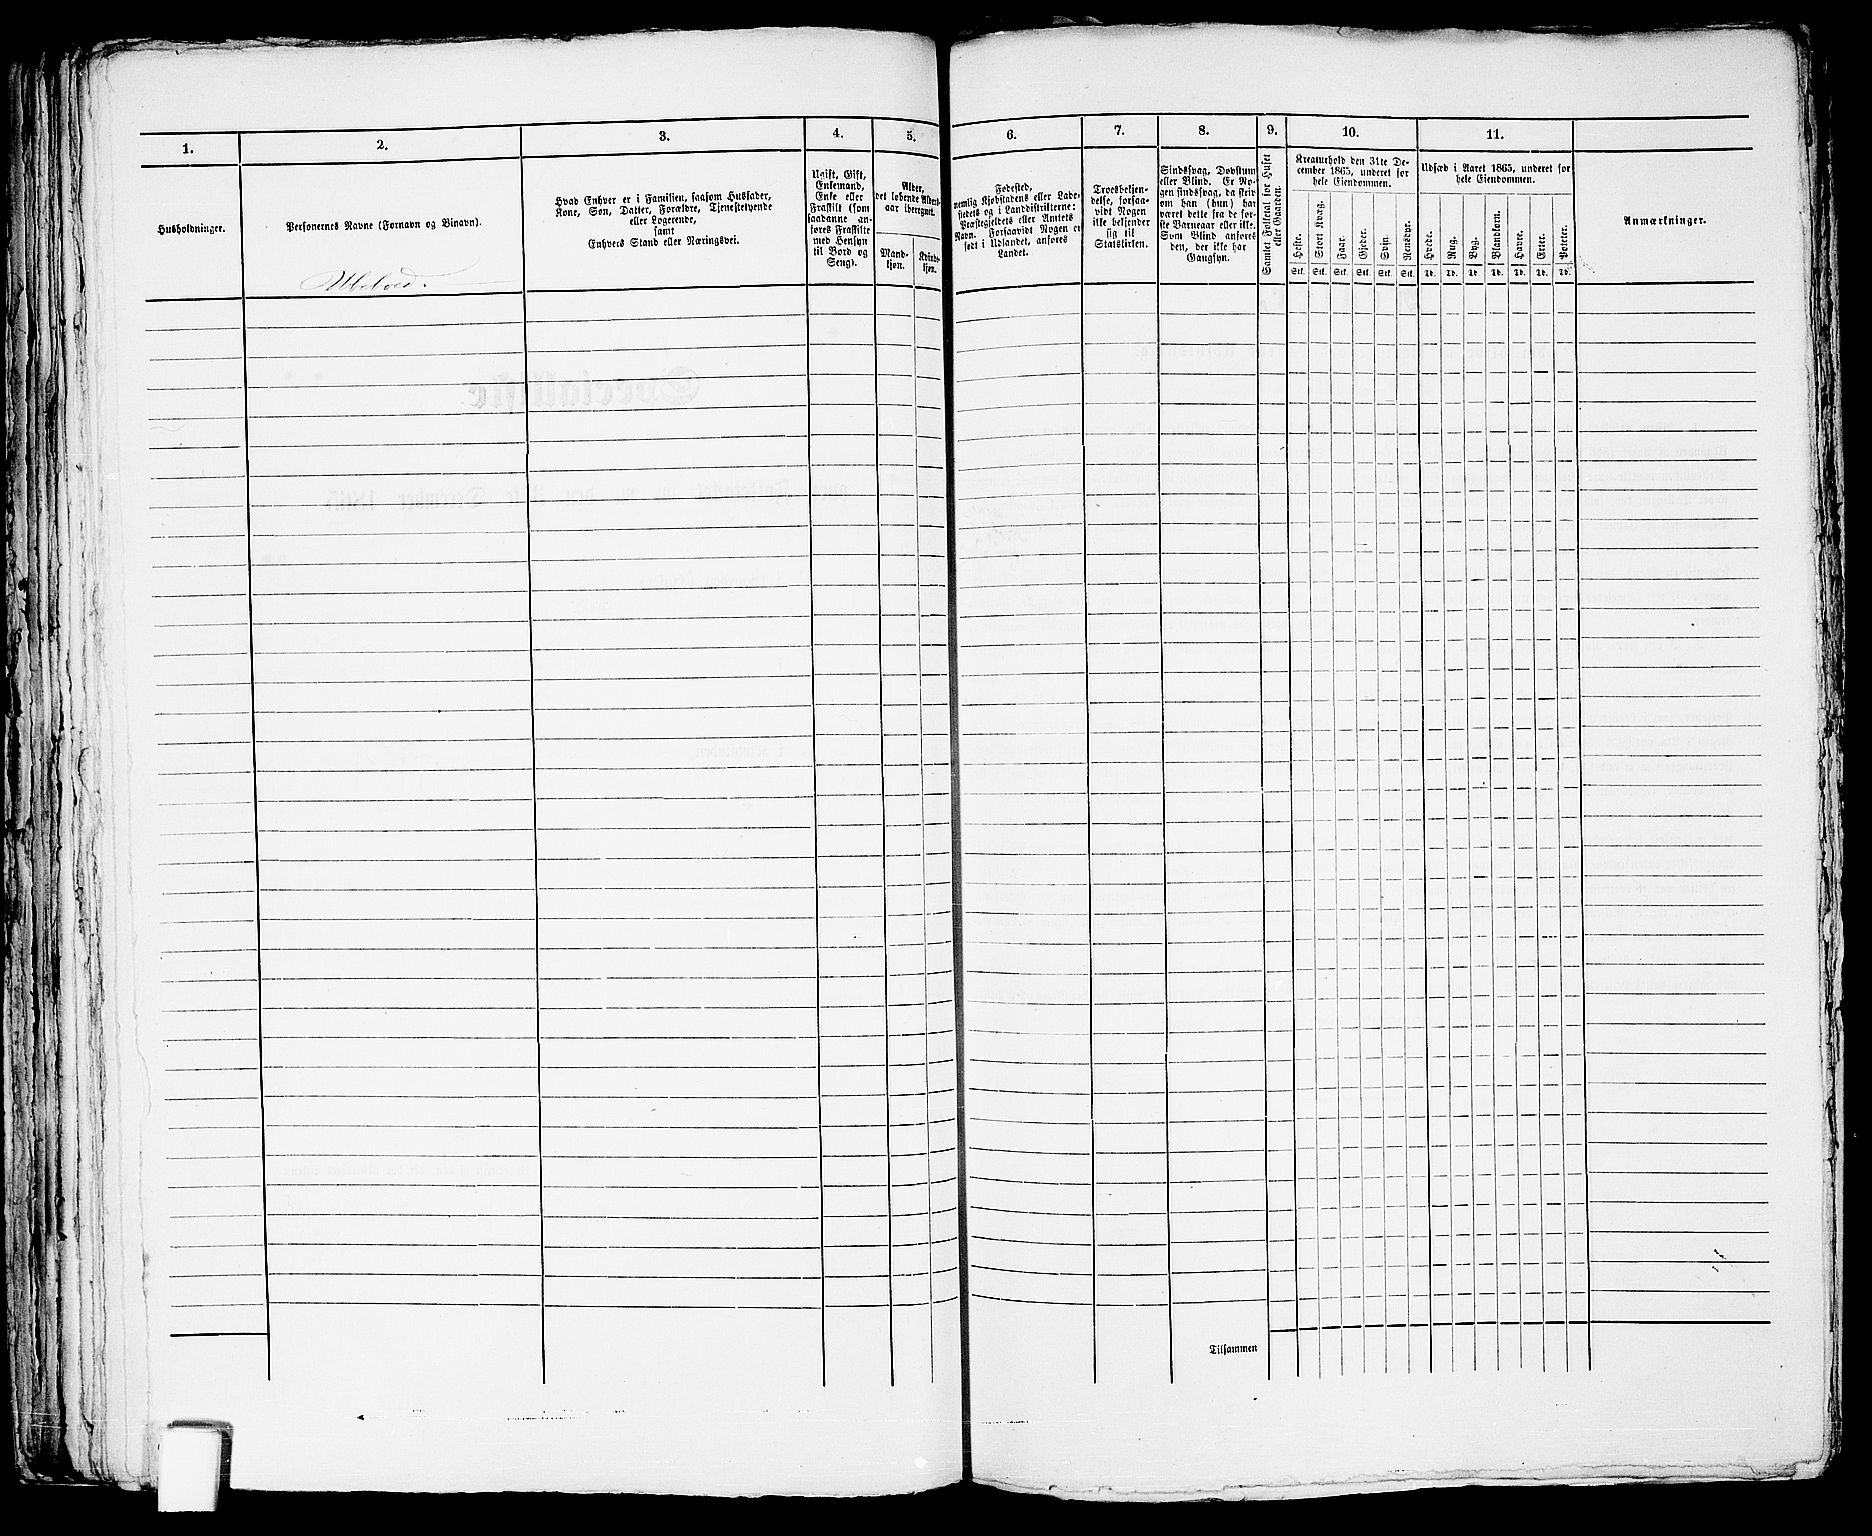 1.
2.
3.
4.
5.
6.
7.
8.
9.
10.
11.
Husholdninger.
Personernes Navne (Fornavn og Binavn).
Hvad Enhver er i Familien, saasom Husfader,
Kone, Søn, Datter, Forældre, Tjenestetyende
eller Logerende,
samt
Enhvers Stand eller Næringsvei.
Ugift, Gift,
Enkemand,
Enke eller
Fraskilt (som
saadanne an-
føres Fraskilte
med Hensyn
til Bord og
Seng).
Alder,
det løbende Alders-
aar iberegnet.
Mand-
kjøn.
Kvinde-
kjøn.
Fødested,
nemlig Kjøbstadens eller Lade-
stedets og i Landdistrikterne:
Præstegjeldets eller Amtets
Navn. Forsaavidt Nogen er
født i Udlandet, anføres
Landet.
Troesbekjen-
delse, forsaa-
vidt Nogen
ikke bekjender
sig til
Statskirken.
Sindssvag, Døvstum
eller Blind. Er No-
gen sindssvag, da skriv
om han (hun) har
været dette fra de før-
ste Barneaar eller ikke.
Som Blind anføres
den, der ikke har
Gangsyn.
Samlet Folketal for Huset
eller Gaarden.
Kreaturhold den 31te De-
cember 1865, underet for
hele Eiendommen.
Heste.
Stort Kvæg.
Faar.
Gjeder.
Svin.
Rensdyr.
Stk. Stk. Stk. Stk. Stk. Stk.
Udsæd i Aaret 1865, underet for
hele Eiendommen.
Hvede.
Rug.
Byg.
Blandkorn.
Havre.
Erter.
Poteter.
Td. Td. Td. Td. Td. Td. Td.
Anmærkninger.
Tilsammen